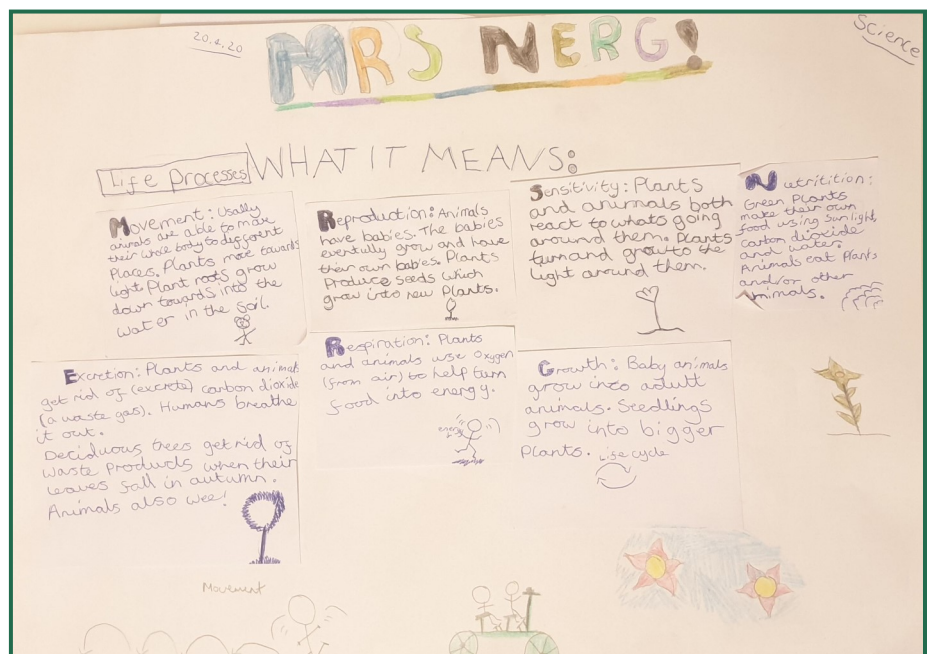 20.4.20
MRS NERG!
Science
Life Processes WHAT IT MEANS:
Movement: Usally
animals are able to move
their whole body to different
Places. Plants move towards
light. Plant roots grow
down towards into the
water in the soil.
Reproduction: Animals
have babies. The babies
eventully grow and have
their own babies. Plants
Produce seeds which
grow into new Plants.
Sensitivity: Plants
and animals both
react to whats going
around them. Plants
turn and grow to the
light around them.
Nutritition:
Green Plants
make their own
food using sunlight,
carbon dioxide
and water.
Animals eat Plants
and/or other
Animals.
Excretion: Plants and animals
get rid of (excrete) carbon dioxide
(a waste gas). Humans breathe
it out.
Deciduous trees get rid of
waste Products when their
leaves fall in autumn.
Animals also wee!
Respiration: Plants
and animals use oxygen
(from air) to help turn
food into energy.
energy
Growth: Baby animals
grow into adult
animals. Seedlings
grow into bigger
Plants. Life cycle
Movement